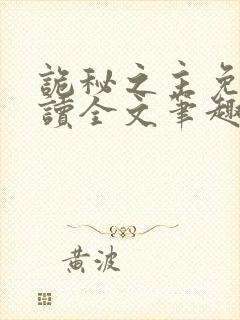 詭秘之主免
讀全文筆趣
黃波